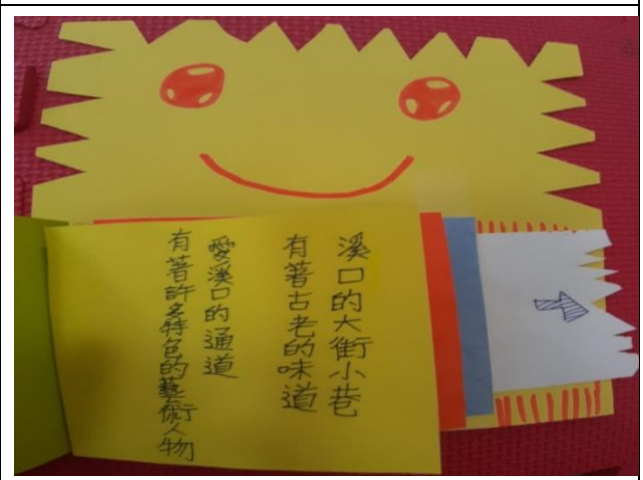 溪口的大街小巷
有著古老的味道
愛溪口的通道
有著許多特色的藝術人物